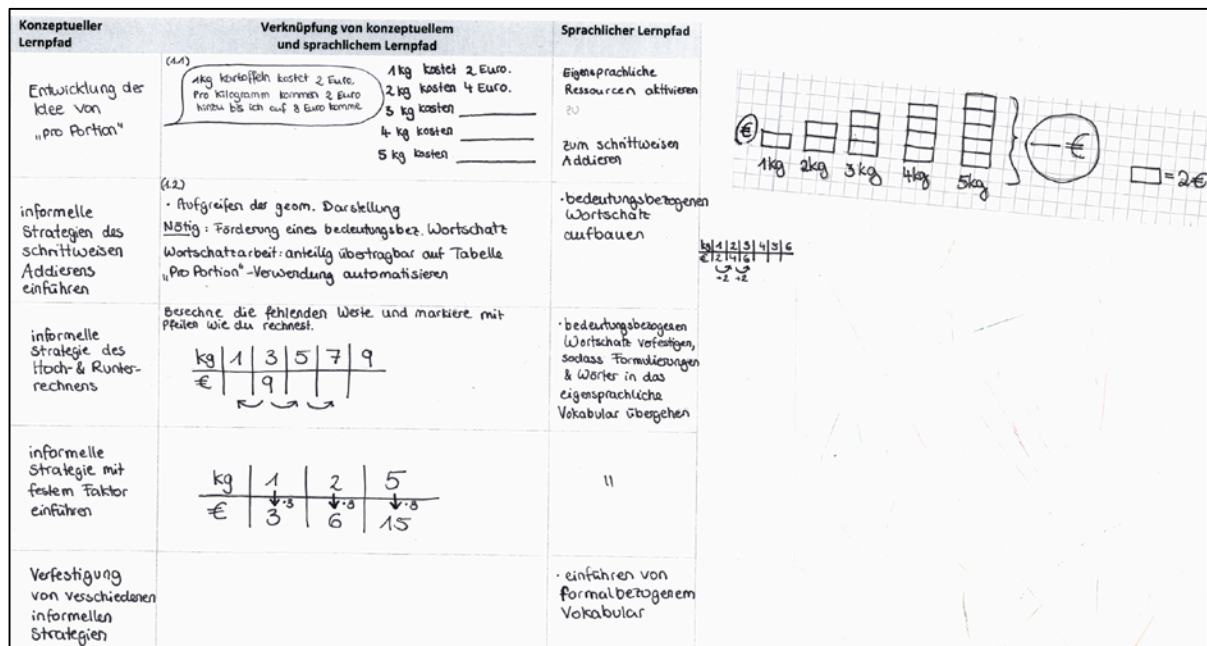 Konzeptueller
Lernpfad
Verknüpfung von konzeptuellem
und sprachlichem Lernpfad
Sprachlicher Lernpfad
Entwicklung der
Idee von
„pro Portion"
(1.1)
1kg Kartoffeln kostet 2 Euro.
Pro Kilogramm kommen 2 Euro
hinzu bis ich auf 8 Euro komme
1 kg kostet 2 Euro.
2 kg kosten 4 Euro.
3 kg kosten
4 kg kosten
5 kg kosten
Eigensprachliche
Ressourcen aktivieren
zu
zum schrittweisen
Addieren
€
1kg 2kg 3kg 4kg 5kg
— €
= 2€
informelle
Strategien des
schrittweisen
Addierens
einführen
(1.2)
· Aufgreifen der geom. Darstellung
Nötig: Förderung eines bedeutungsbez. Wortschatz
Wortschatzarbeit: anteilig übertragbar auf Tabelle
„Pro Portion"-Verwendung automatisieren
· bedeutungsbezogenen
Wortschatz
aufbauen
kg 1 2 3 4 5 6
€ 2 4 6
+2 +2
informelle
Strategie des
Hoch- & Runter-
rechnens
Berechne die fehlenden Werte und markiere mit
Pfeilen wie du rechnest.
kg 1 3 5 7 9
€ 9
· bedeutungsbezogenen
Wortschatz vefestigen,
sodass Formulierungen
& Wörter in das
eigensprachliche
Vokabular übergehen
informelle
Strategie mit
festem Faktor
einführen
kg 1 2 5
·3 ·3 ·3
€ 3 6 15
"
Verfestigung
von verschiedenen
informellen
Strategien
· einführen von
formalbezogenem
Vokabular